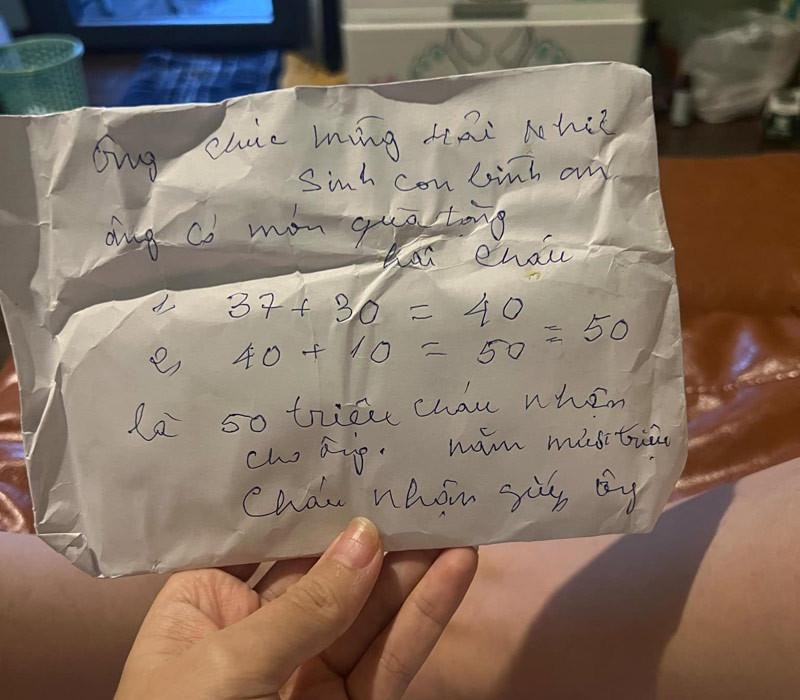 Ông chúc mừng Hải Nhi
Sinh con bình an
ông có món quà tặng
hai cháu
1, 37 + 30 = 40
2, 40 + 10 = 50 = 50
là 50 triệu cháu nhận
cho ông. năm mươi triệu
Cháu nhận giúp ông